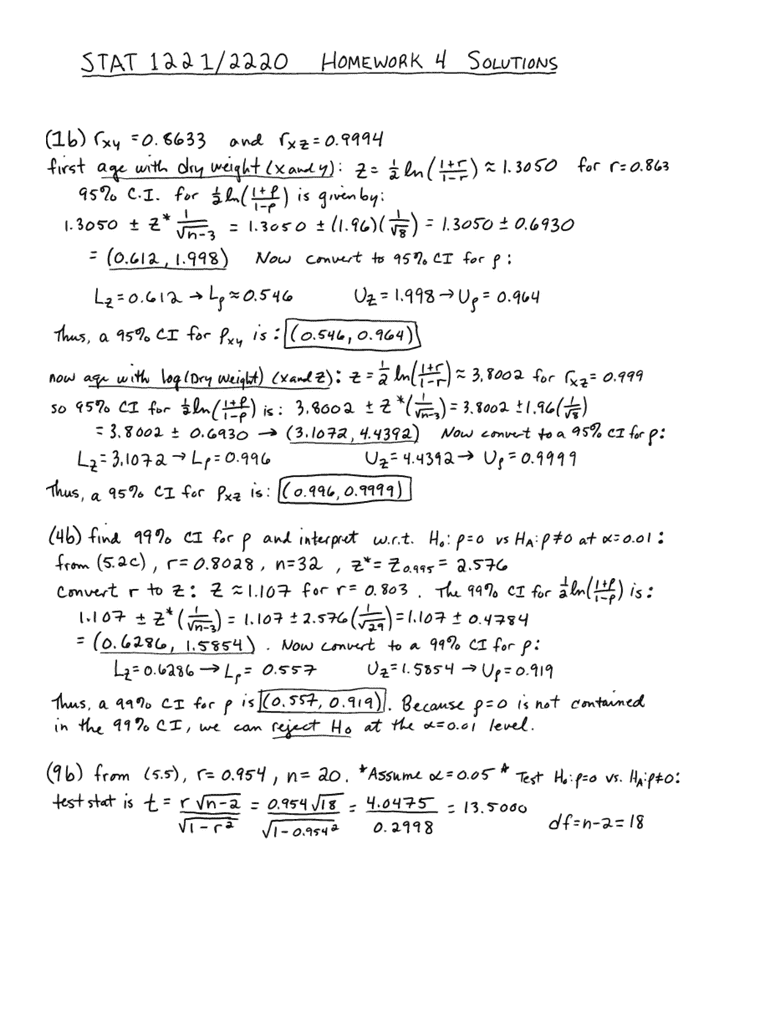 STAT 1221/2220 HOMEWORK 4 SOLUTIONS
(1b) r_xy = 0.8633 and r_xz = 0.9994
first age with dry weight (x and y): z = ½ ln((1+r)/(1-r)) ≈ 1.3050 for r = 0.863
95% C.I. for ½ ln((1+ρ)/(1-ρ)) is given by:
1.3050 ± z* 1/√(n-3) = 1.3050 ± (1.96)(1/√8) = 1.3050 ± 0.6930
= (0.612, 1.998) Now convert to 95% CI for ρ:
L_z = 0.612 → L_ρ ≈ 0.546 U_z = 1.998 → U_ρ = 0.964
Thus, a 95% CI for ρ_xy is: (0.546, 0.964)
now age with log(Dry Weight) (x and z): z = ½ ln((1+r)/(1-r)) ≈ 3.8002 for r_xz = 0.999
so 95% CI for ½ ln((1+ρ)/(1-ρ)) is: 3.8002 ± z*(1/√(n-3)) = 3.8002 ± 1.96(1/√8)
= 3.8002 ± 0.6930 → (3.1072, 4.4392) Now convert to a 95% CI for ρ:
L_z = 3.1072 → L_ρ = 0.996 U_z = 4.4392 → U_ρ = 0.9999
Thus, a 95% CI for ρ_xz is: (0.996, 0.9999)
(4b) find 99% CI for ρ and interpret w.r.t. H₀: ρ=0 vs H_A: ρ≠0 at α=0.01:
from (5.2c), r = 0.8028, n = 32, z* = z_0.995 = 2.576
Convert r to z: z ≈ 1.107 for r = 0.803. The 99% CI for ½ ln((1+ρ)/(1-ρ)) is:
1.107 ± z*(1/√(n-3)) = 1.107 ± 2.576(1/√29) = 1.107 ± 0.4784
= (0.6286, 1.5854). Now convert to a 99% CI for ρ:
L_z = 0.6286 → L_ρ = 0.557 U_z = 1.5854 → U_ρ = 0.919
Thus, a 99% CI for ρ is (0.557, 0.919). Because ρ=0 is not contained
in the 99% CI, we can reject H₀ at the α=0.01 level.
(9b) from (5.5), r = 0.954, n = 20. *Assume α=0.05* Test H₀: ρ=0 vs. H_A: ρ≠0:
test stat is t = r√(n-2)/√(1-r²) = 0.954√18/√(1-0.954²) = 4.0475/0.2998 = 13.5000
df = n-2 = 18